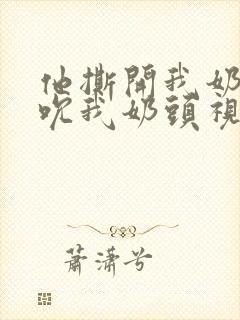 他撕開我奶
吮我奶頭視
蕭瀟兮